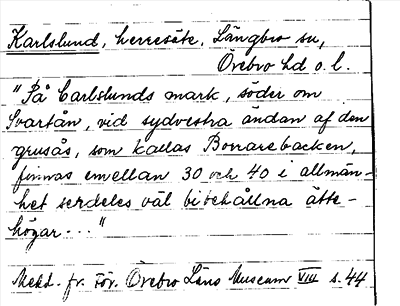 Karlslund, herresäte, Längbro sn,
Örebro hd o. l.
"På Carlslunds mark, söder om
Svartån, vid sydvestra ändan af den
grusås, som kallas Bonarebacken,
finnas emellan 30 och 40 i allmän-
het serdeles väl bibehållna ätte-
högar..."
Medd. fr. För. Örebro Läns Museum VIII s. 44